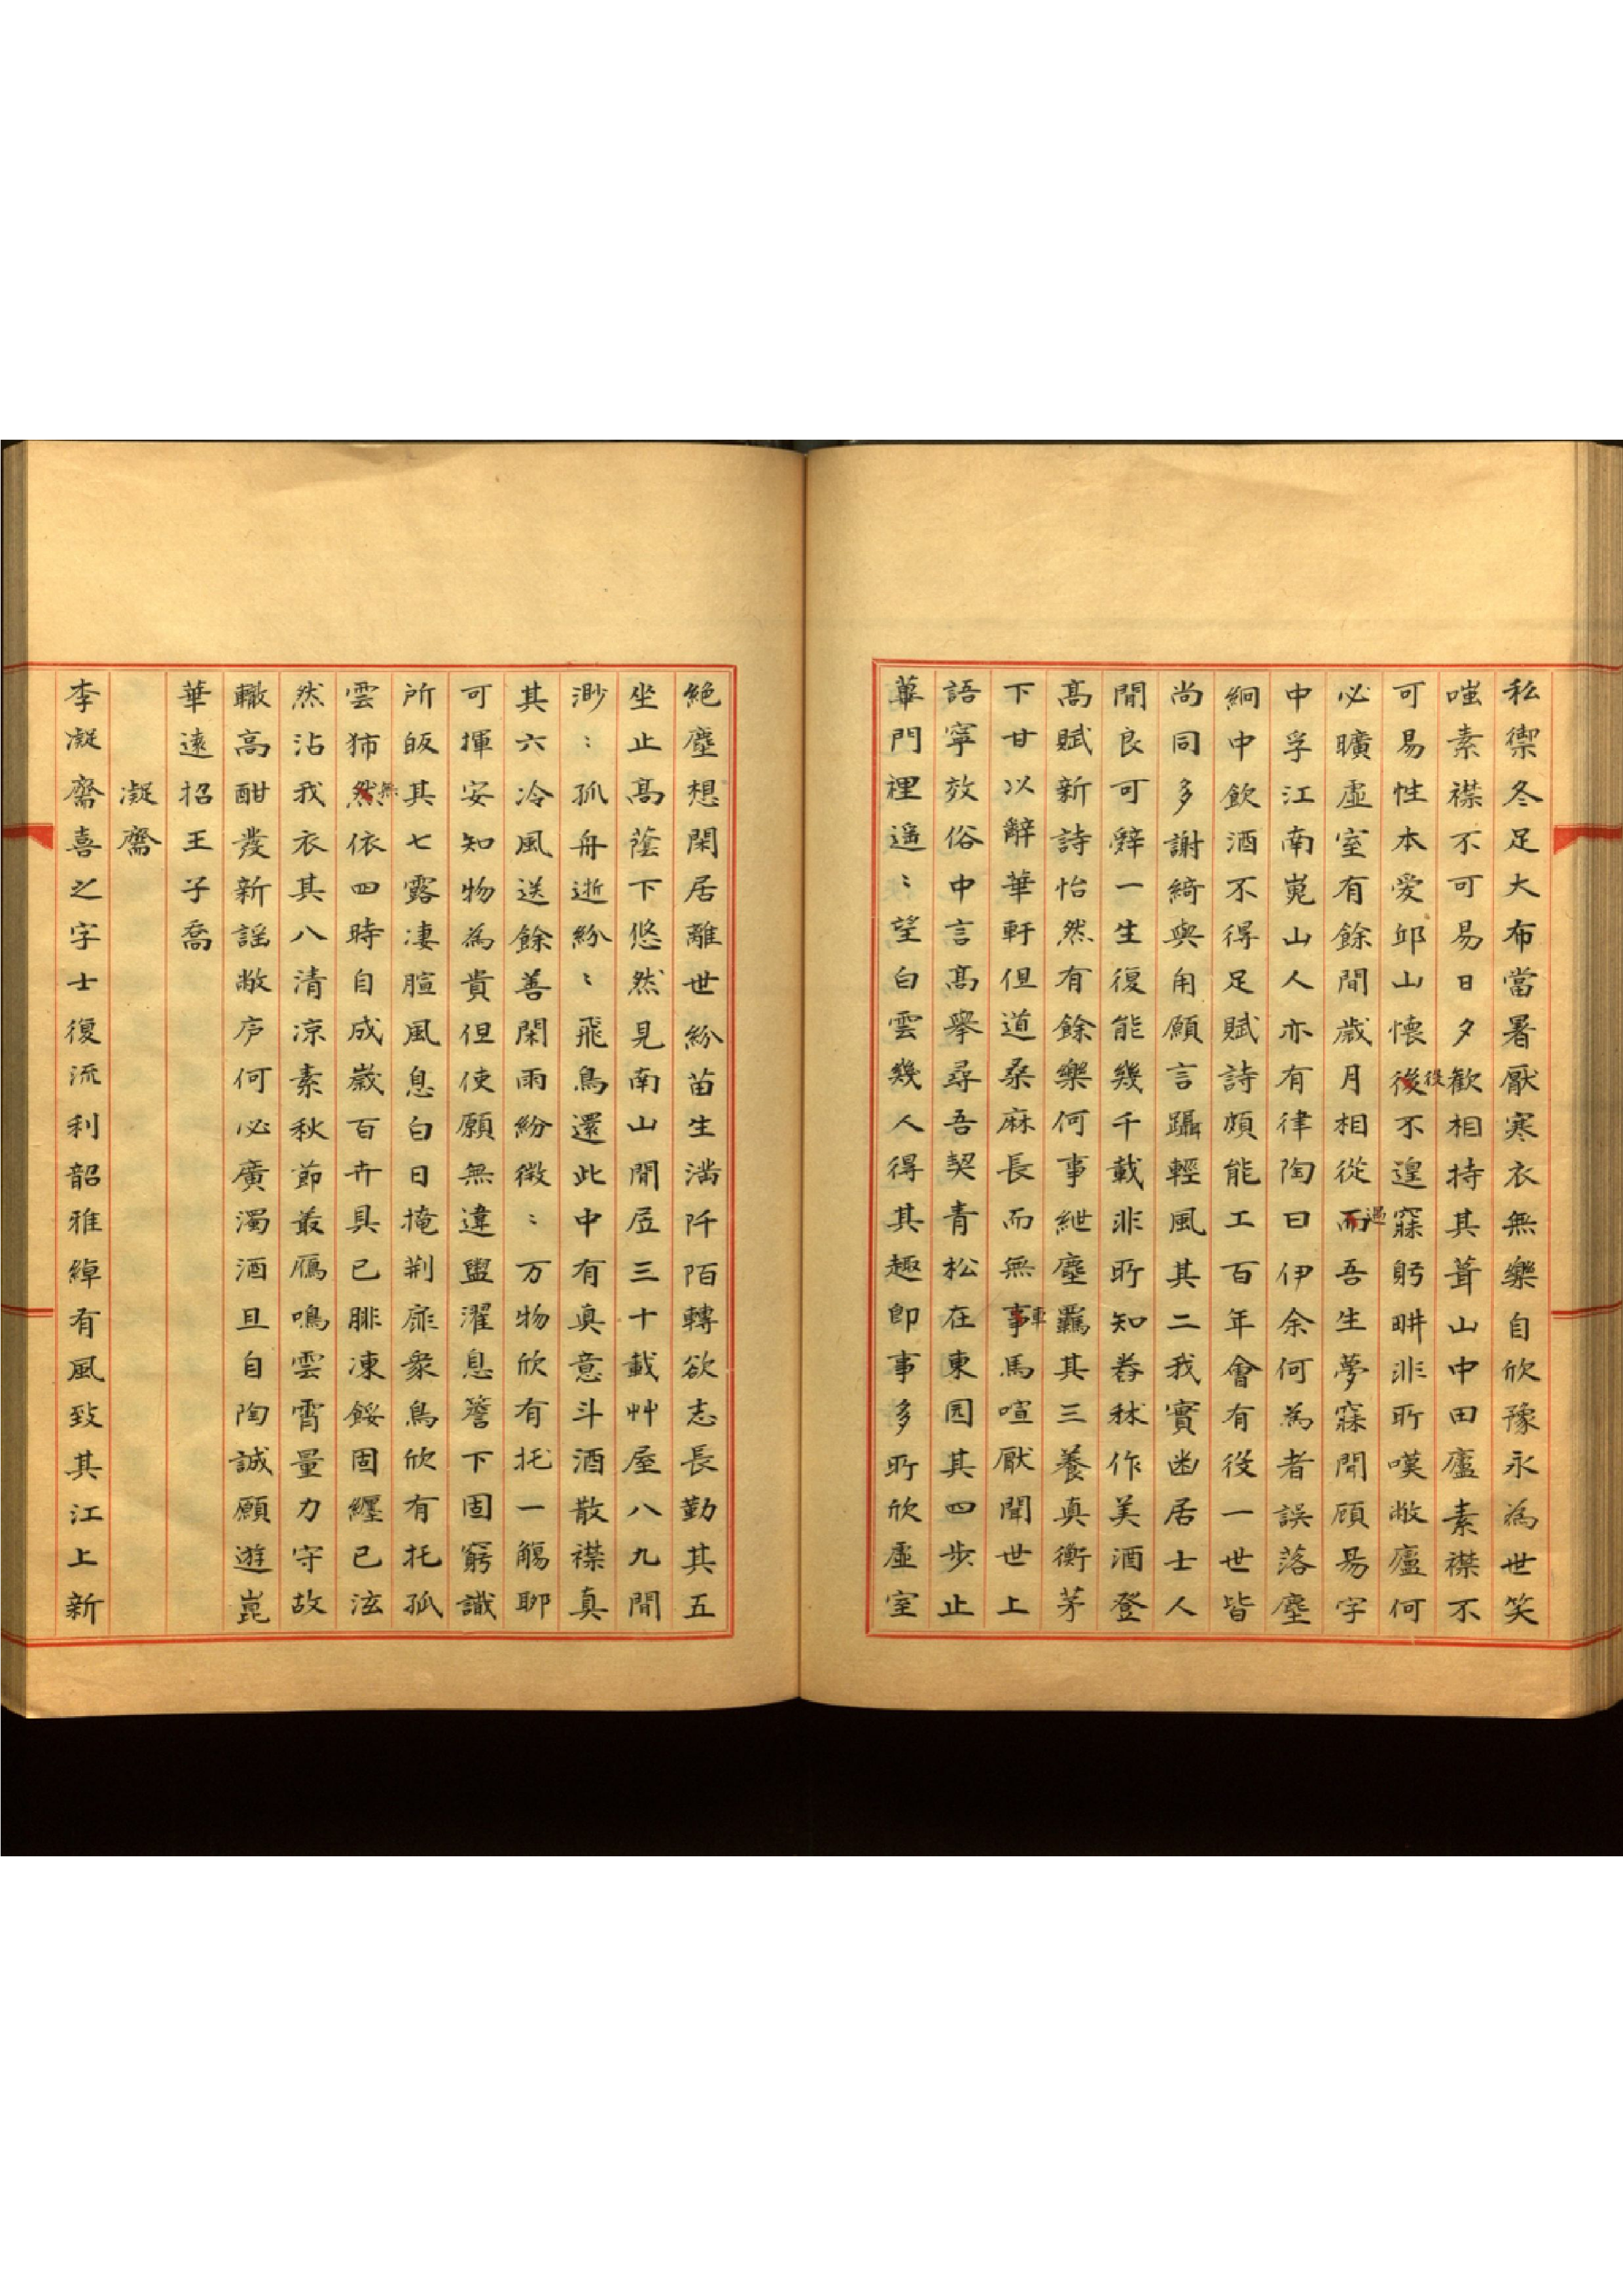 私禦冬足大布當暑厭寒衣無樂自欣豫永為世笑
嗤素襟不可易日夕歡相持其葺山中田廬素襟不
可易性本愛邱山懷後不遑寐躬畊非所嘆敝廬何
役
必曠虛室有餘間歲月相從而吾生夢寐間顧易字
過
中孚江南嵬山人亦有律陶曰伊余何為者誤落塵
網中飲酒不得足賦詩頗能工百年會有役一世皆
尚同多謝綺與甪願言躡輕風其二我實幽居士人
間良可辤一生復能幾千載非所知舂秫作美酒登
高賦新詩怡然有餘樂何事紲塵羈其三養真衡茅
下甘以辭華軒但道桑麻長而無事馬喧厭聞世上
車
語寧效俗中言高舉尋吾契青松在東園其四步止
蓽門裡遥〻望白雲幾人得其趣即事多所欣虛室
絕塵想閑居離世紛苗生滿阡陌轉欲志長勤其五
坐止高蔭下悠然見南山間居三十載艸屋八九間
渺〻孤舟逝紛〻飛鳥還此中有真意斗酒散襟真
其六冷風送餘善閑雨紛微〻万物欣有托一觴聊
可揮安知物為貴但使願無違盥濯息簷下固窮識
所皈其七露凄暄風息白日掩荆扉衆鳥欣有托孤
雲獨然依四時自成歲百卉具已腓凍餒固纏已泫
無
然沾我衣其八清凉素秋節叢鴈鳴雲霄量力守故
轍高酣發新謡敝庐何必廣濁酒且自陶誠願遊崑
華遠招王子喬
凝齋
李凝齋喜之字士復流利韶雅綽有風致其江上新